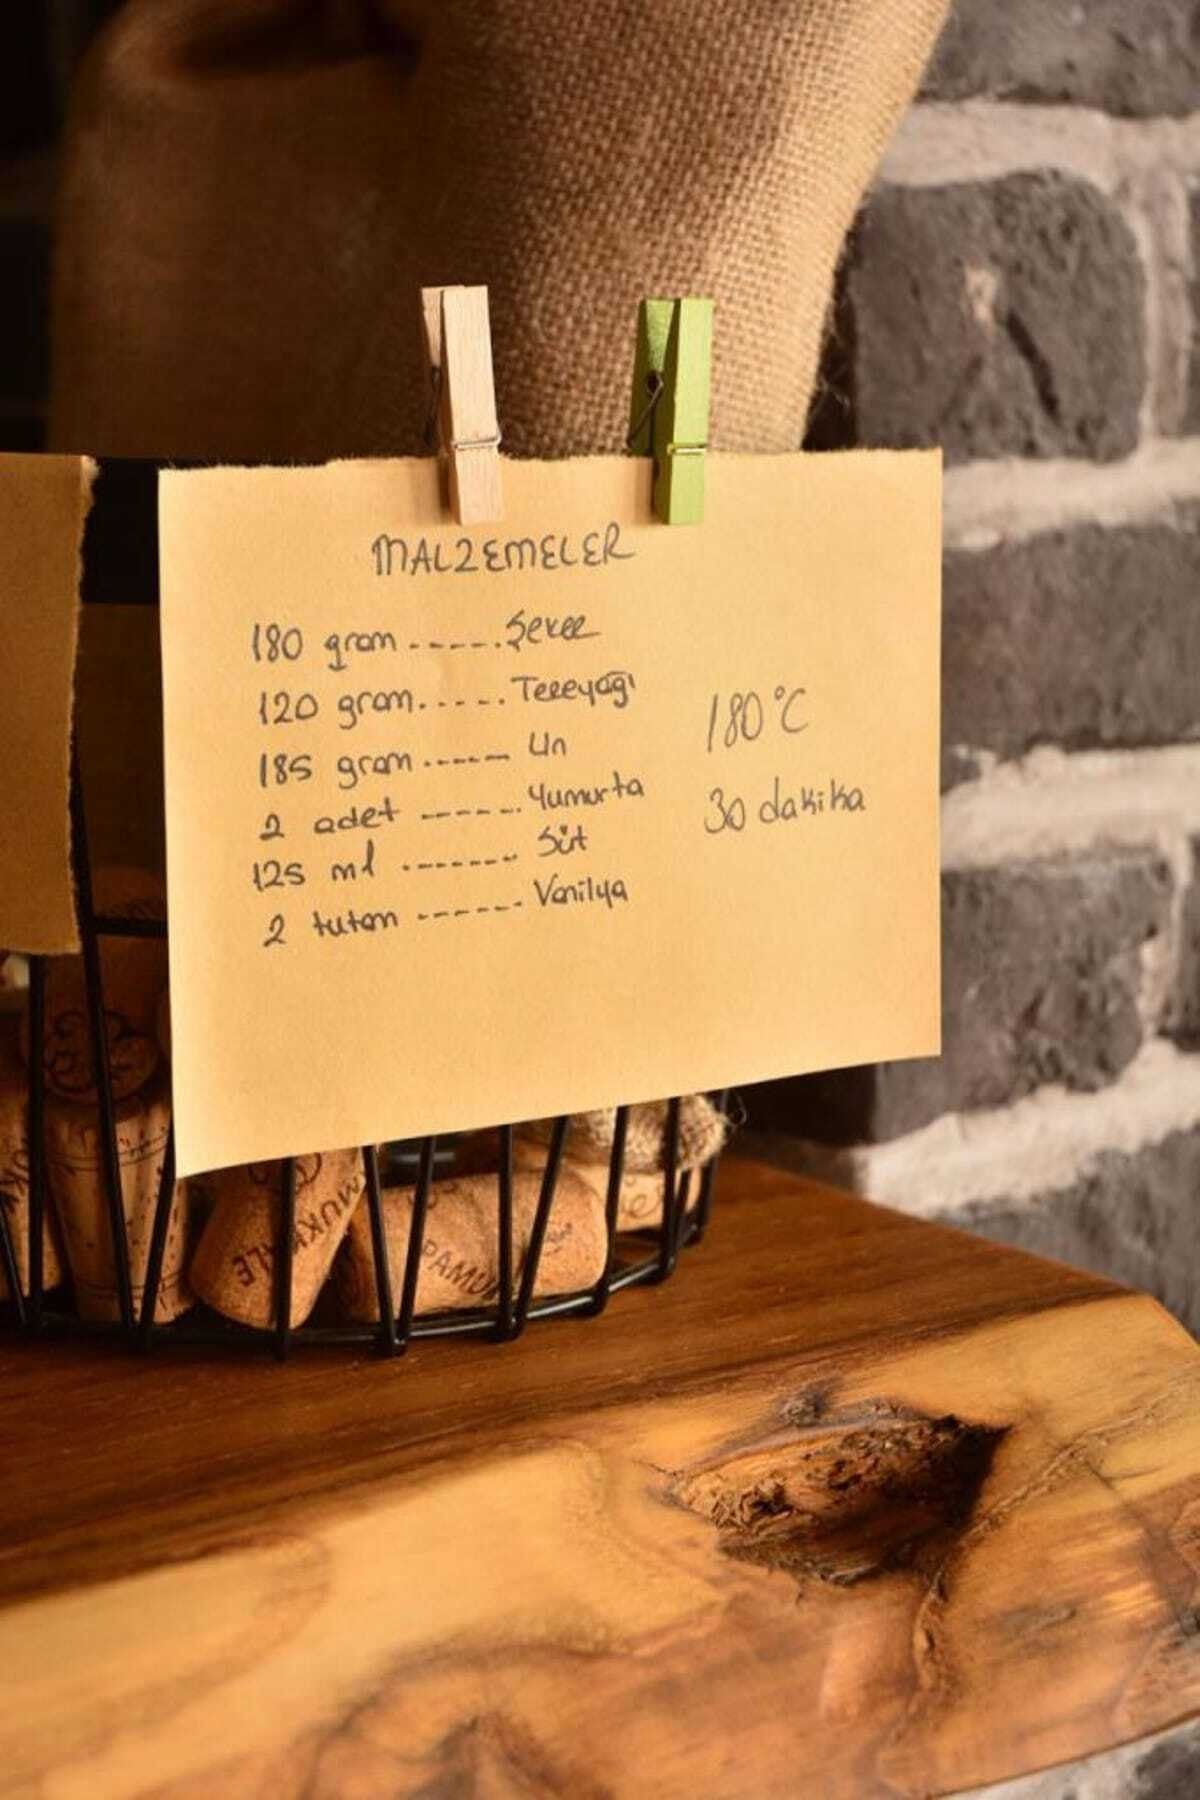 MALZEMELER
180 gram ----- Şeker
120 gram ----- Tereyağı
185 gram ----- Un
2 adet ------ Yumurta
125 ml ------- Süt
2 tutam ------ Vanilya
180°C
30 dakika
PAMUK